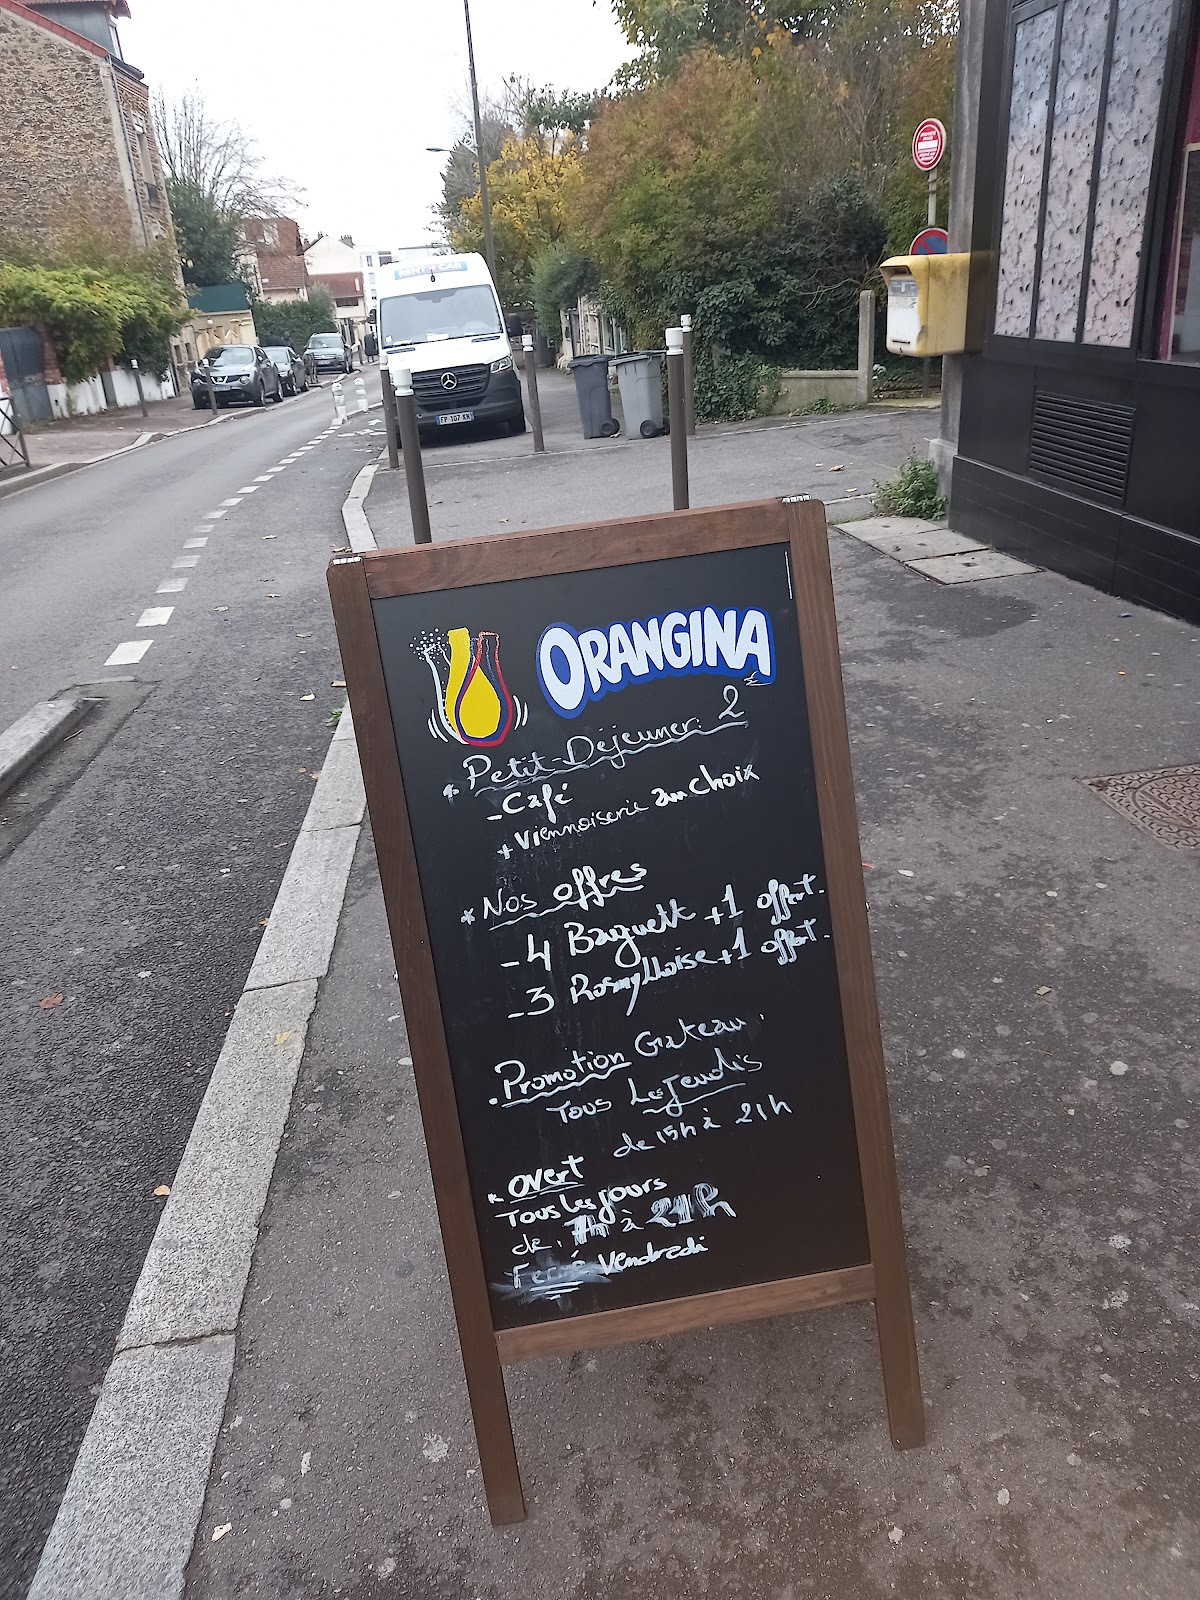 RENT A CAR
FP 107 KW
ORANGINA
* Petit-Déjeuner: 2
- Café
+ Viennoiserie au choix
* Nos offres
- 4 Baguett +1 offert.
- 3 Rosnylloise +1 offert.
. Promotion Gateau :
Tous Les Jeudis
de 15h à 21h
* OVert
Tous les jours
de. 7h à 21h
Fermé Vendredi